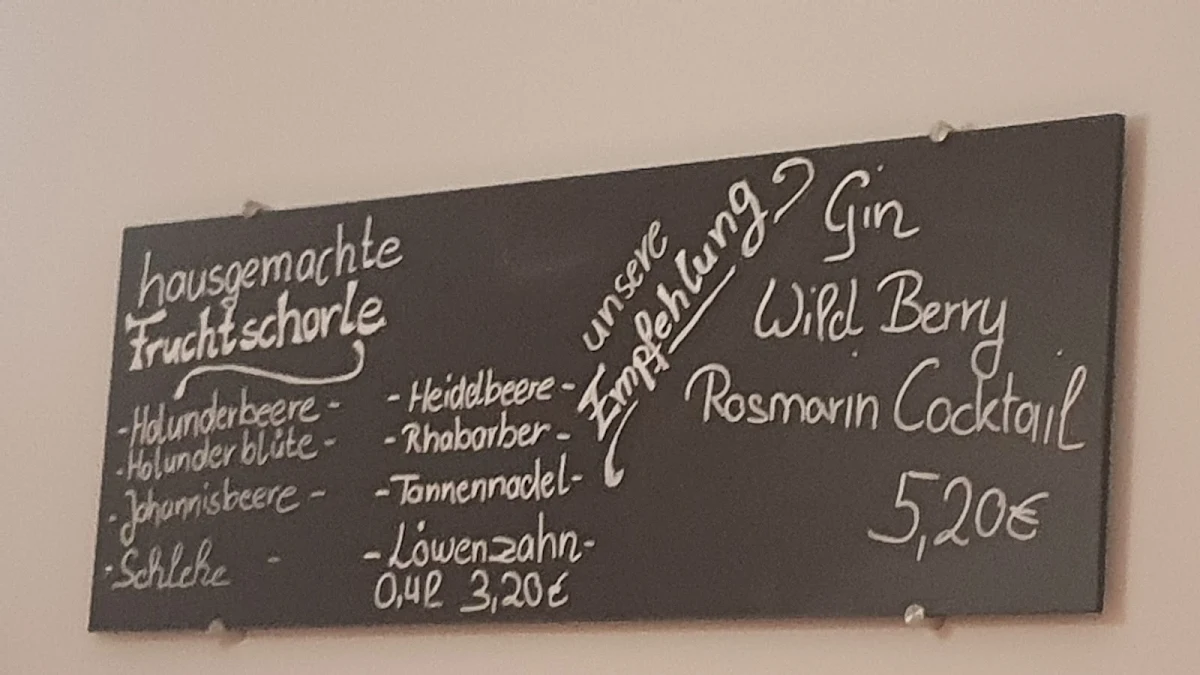 hausgemachte
Fruchtschorle
-Holunderbeere-
-Holunderblüte-
-Johannisbeere-
-Schlehe -
-Heidelbeere-
-Rhabarber-
-Tannennadel-
-Löwenzahn-
0,4l 3,20€
unsere
Empfehlung
Gin
Wild Berry
Rosmarin Cocktail
5,20€